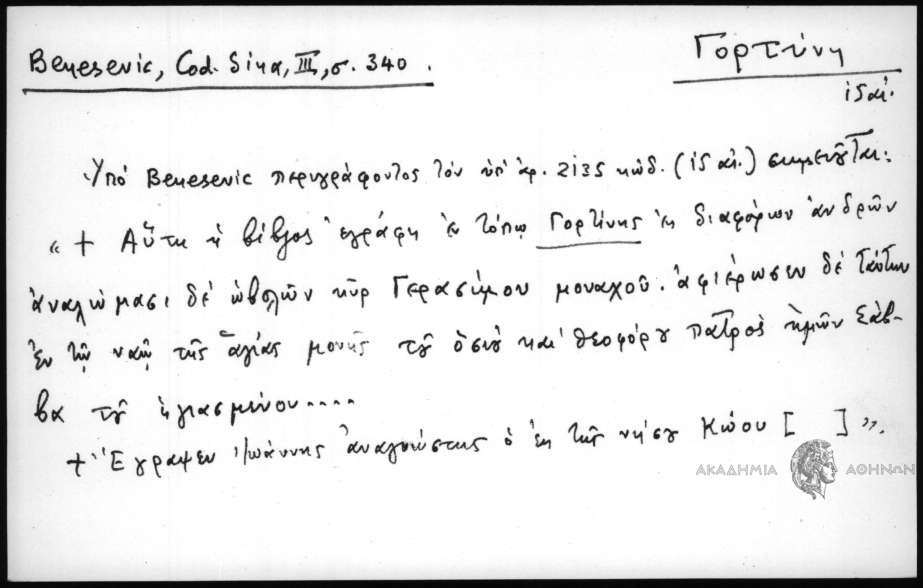 Benesevic, Cod. Sina, III, σ. 340.
Γορτύνη
ιϛ αἰ.
Ὑπό Benesevic περιγράφοντος τόν ὑπ' ἀρ. 2135 κώδ. (ιϛ αἰ.) σημειοῦται:
« + Αὕτη ἡ βίβλος ἐγράφη ἐν τόπῳ Γορτίνης ἐκ διαφόρων ἀνδρῶν
ἀναλώμασι δέ ὠβολῶν κῦρ Γερασίμου μοναχοῦ. ἀφιέρωσεν δέ ταύτην
ἐν τῷ ναῷ τῆς ἁγίας μονῆς τοῦ ὁσίου καί θεοφόρου πατρός ἡμῶν Σάβ-
βα τοῦ ἡγιασμένου....
+ Ἔγραψεν Ἰωάννης ἀναγνώστης ὁ ἐκ τῆς νήσου Κώου [ ] ».
ΑΚΑΔΗΜΙΑ ΑΘΗΝΩΝ